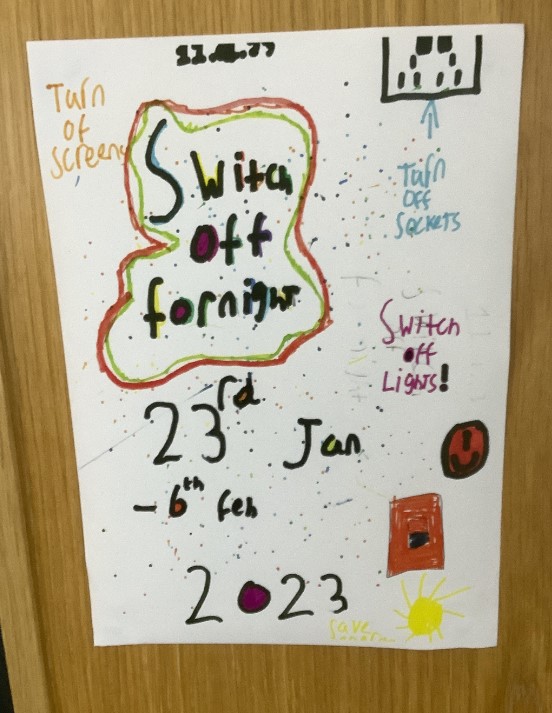 Turn
of
Screens
Switch
off
fornight
Turn
OFF
Sockets
Switch
off
Lights!
23rd Jan
- 6th feb
2023
Save